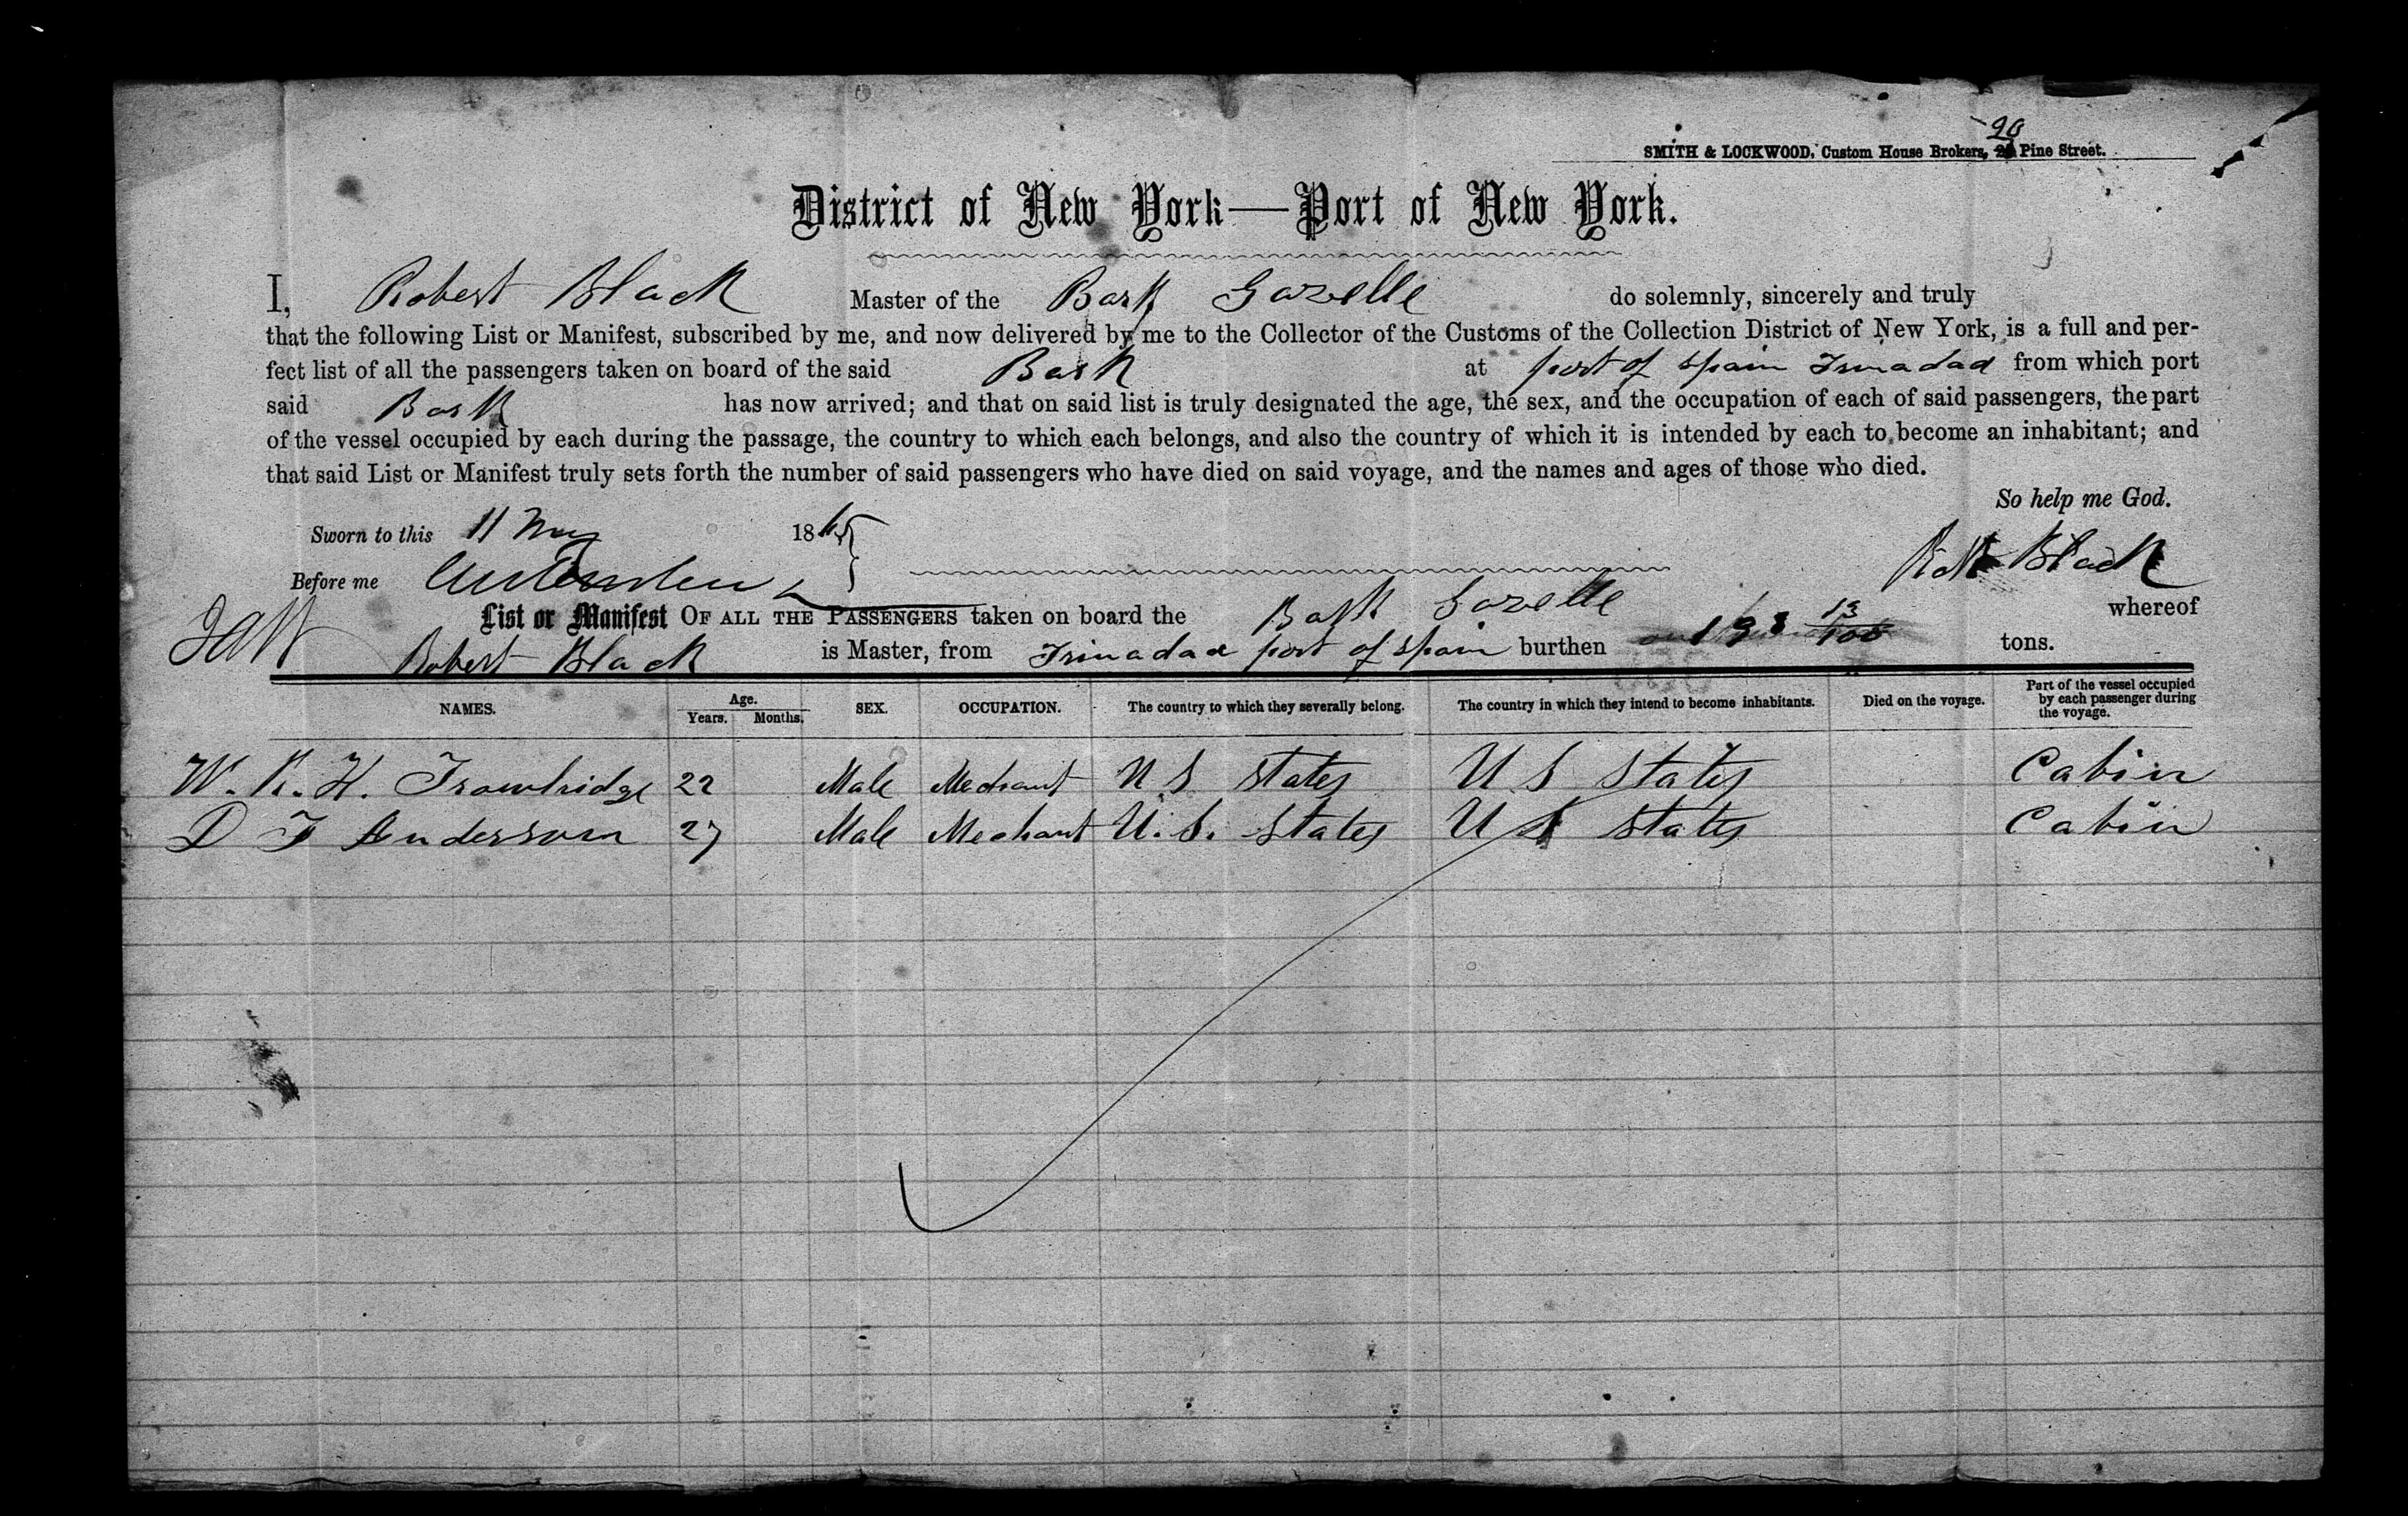 90
SMITH & LOCKWOOD, Custom House Brokers, Pine Street.
District of New York—Port of New York.
I, Robert Black Master of the Bark Gazelle do solemnly, sincerely and truly
that the following List or Manifest, subscribed by me, and now delivered by me to the Collector of the Customs of the Collection District of New York, is a full and per-
fect list of all the passengers taken on board of the said Bark at port of Spain Trinadad from which port
said Bark has now arrived; and that on said list is truly designated the age, the sex, and the occupation of each of said passengers, the part
of the vessel occupied by each during the passage, the country to which each belongs, and also the country of which it is intended by each to become an inhabitant; and
that said List or Manifest truly sets forth the number of said passengers who have died on said voyage, and the names and ages of those who died.
So help me God.
Sworn to this 11 May 1865
Before me Robt Black
List or Manifest OF ALL THE PASSENGERS taken on board the Bark Gazelle whereof
Robert Black is Master, from Trinadad port of Spain burthen 193 13/100 tons.
NAMES. Age. Years. Months. SEX. OCCUPATION. The country to which they severally belong. The country in which they intend to become inhabitants. Died on the voyage. Part of the vessel occupied by each passenger during the voyage.
W. R. H. Trowbridge 22 Male Mechant U S States U S States Cabin
D F Andersson 27 Male Mechant U. S. States U S States Cabin